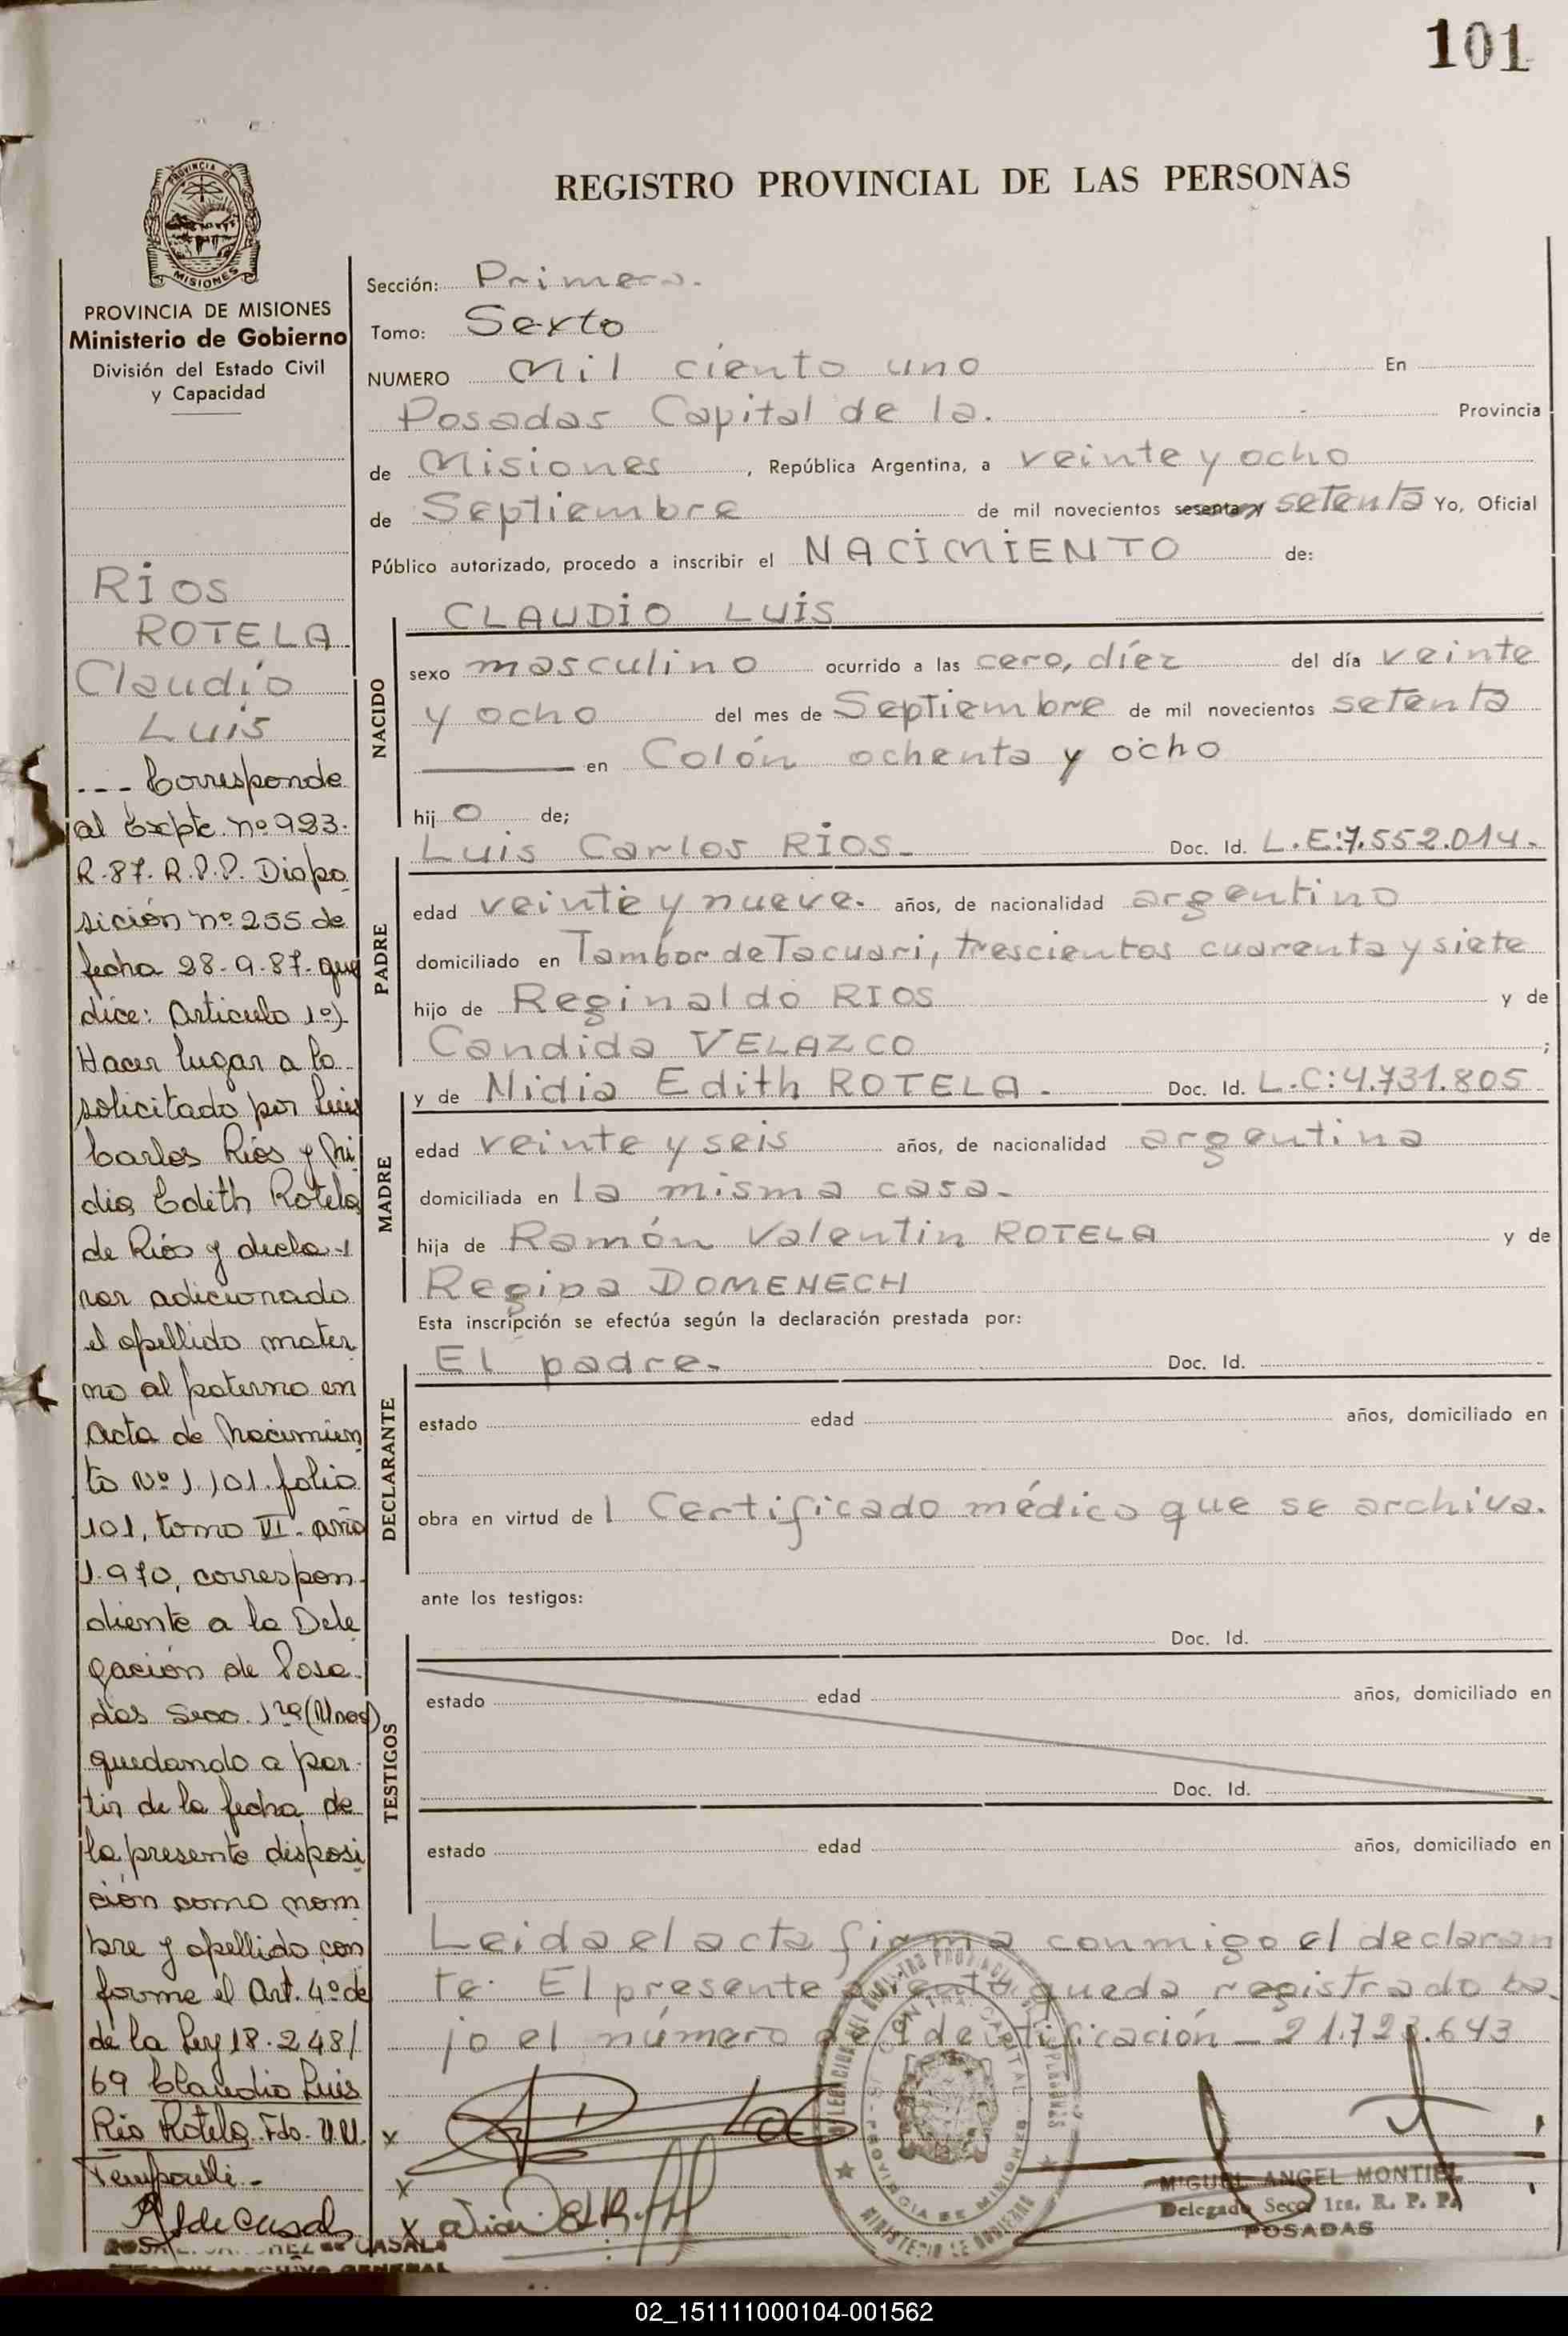 101
PROVINCIA DE
MISIONES
REGISTRO PROVINCIAL DE LAS PERSONAS
PROVINCIA DE MISIONES
Ministerio de Gobierno
División del Estado Civil
y Capacidad
RIOS
ROTELA
Claudio
Luis
--- Corresponde
al Expte. nº 923.
R-87. R.P.P. Dispo
sición nº 255 de
fecha 28-9-87. que
dice: Artículo 1º)
Hacer lugar a lo
solicitado por Luis
Carlos Ríos y Ni
dia Edith Rotela
de Ríos y decla-
rar adicionado
el apellido mater
no al paterno en
Acta de Nacimien
to Nº 1.101. folio
101, tomo VI. año
1.970, correspon-
diente a la Dele
gación de Posa-
das Secc. 1ra (Unos)
quedando a par-
tir de la fecha de
la presente disposi
ción como nom
bre y apellido con
forme el Art. 4º de
de la Ley 18.248/
69 Claudio Luis
Rio Rotela. Fdo.
Sección: Primera.
Tomo: Sexto
NUMERO Mil ciento uno En
Posadas Capital de la. Provincia
de Misiones, República Argentina, a veinte y ocho
de Septiembre de mil novecientos sesenta y setenta Yo, Oficial
Público autorizado, procedo a inscribir el NACIMIENTO de:
NACIDO
CLAUDIO LUIS
sexo masculino ocurrido a las cero, díez del día veinte
y ocho del mes de Septiembre de mil novecientos setenta
en Colón ochenta y ocho
hijo de;
PADRE
Luis Carlos RIOS- Doc. Id. L.E:7.552.014.-
edad veinte y nueve. años, de nacionalidad argentino
domiciliado en Tambor de Tacuari, trescientos cuarenta y siete
hijo de Reginaldo RIOS y de
Candida VELAZCO ;
MADRE
y de Nidia Edith ROTELA- Doc. Id. L.C:4.731.805
edad veinte y seis años, de nacionalidad argentina
domiciliada en la misma casa-
hija de Ramón Valentin ROTELA y de
Regina DOMENECH
Esta inscripción se efectúa según la declaración prestada por:
DECLARANTE
El padre- Doc. Id.
estado edad años, domiciliado en
obra en virtud del Certificado médico que se archiva.
ante los testigos:
TESTIGOS
Doc. Id.
estado edad años, domiciliado en
Doc. Id.
estado edad años, domiciliado en
Leida el acta firma conmigo el declaran
te. El presente asiento queda registrado ba-
jo el número de identificación - 21.723.643
MIGUEL ANGEL MONTIEL
Delegado Secc. 1ra. R. P. P.
POSADAS
CASAL
02_151111000104-001562